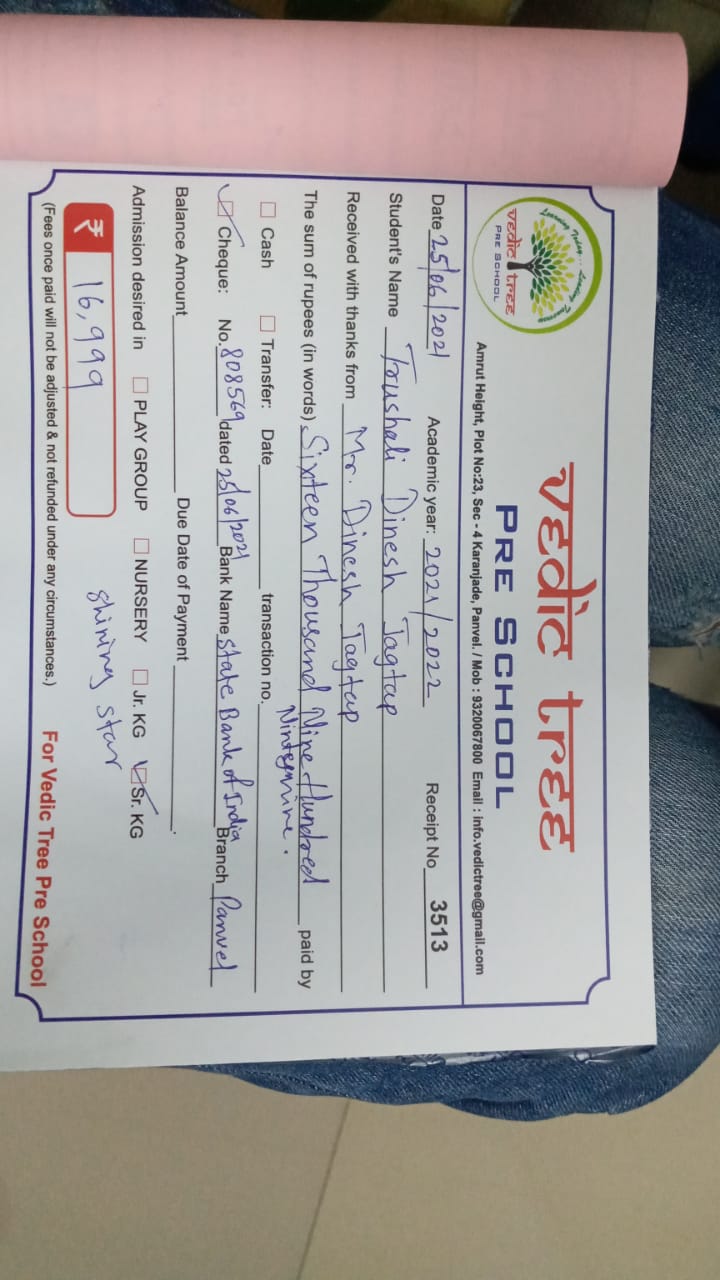 Learning Today... Leading Tomorrow
vedic tree
PRE SCHOOL
vedic tree
PRE SCHOOL
Amrut Height, Plot No:23, Sec - 4 Karanjade, Panvel. / Mob : 9320067800 Email : info.vedictree@gmail.com
Date 25/06/2021 Academic year: 2021/2022 Receipt No 3513
Student's Name Trushali Dinesh Jagtap
Received with thanks from Mr. Dinesh Jagtap
The sum of rupees (in words) Sixteen Thousand Nine Hundred paid by
Nintynine.
Cash Transfer: Date transaction no.
Cheque: No. 808569 dated 25/06/2021 Bank Name State Bank of India Branch Panvel
Balance Amount Due Date of Payment
Admission desired in PLAY GROUP NURSERY Jr. KG Sr. KG
₹ 16,999 Shining Star
(Fees once paid will not be adjusted & not refunded under any circumstances.) For Vedic Tree Pre School